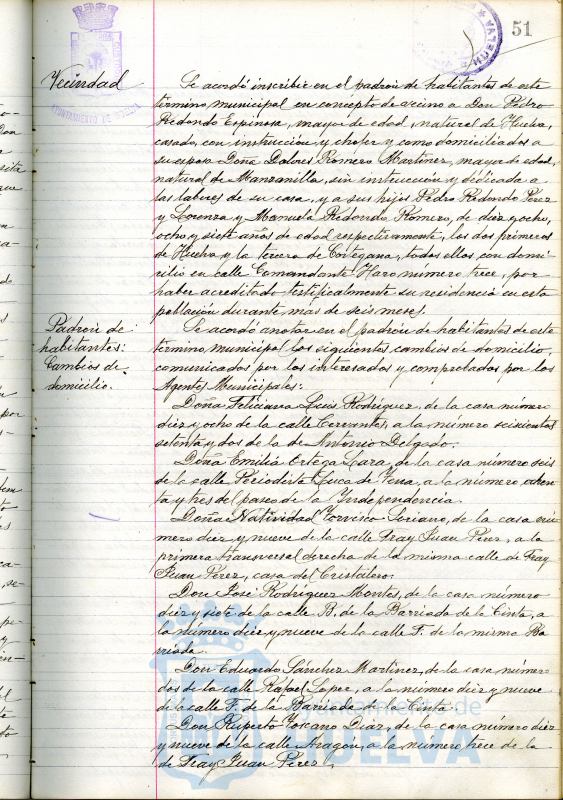 51
AYUNTAMIENTO DE HUELVA
Vecindad
Se acordó inscribir en el padrón de habitantes de este
término municipal en concepto de vecino a Don Pedro
Redondo Espinosa, mayor de edad, natural de Huelva,
casado, con instrucción y chofer y como domiciliados a
su esposa Doña Dolores Romero Martínez, mayor de edad,
natural de Manzanilla, sin instrucción y dedicada a
las labores de su casa, y a sus hijos Pedro Redondo Pérez
y Lorenza y Manuela Redondo Romero, de diez y ocho,
ocho y siete años de edad respectivamente, los dos primeros
de Huelva y la tercera de Cortegana, todos ellos con domi-
cilio en calle Comandante Haro número trece, por
haber acreditado testificalmente su residencia en esta
población durante mas de seis meses.
Padrón de
habitantes:
Cambios de
domicilio.
Se acordó anotar en el padrón de habitantes de este
término municipal los siguientes cambios de domicilio,
comunicados por los interesados y comprobados por los
Agentes Municipales:
Doña Feliciana Luis Rodríguez, de la casa número
diez y ocho de la calle Cervantes, a la número seiscientos
setenta y dos de la de Antonio Delgado.
Doña Emilia Ortega Lara, de la casa número seis
de la calle Periodista Luca de Tena, a la número ochen
ta y tres del paseo de la Independencia.
Doña Natividad Torvisco Soriano, de la casa nú-
mero diez y nueve de la calle Fray Juan Pérez, a la
primera transversal derecha de la misma calle de Fray
Juan Pérez, casa del Cristalero.
Don José Rodríguez Montes, de la casa número
diez y siete de la calle B. de la Barriada de la Cinta, a
la número diez y nueve de la calle F. de la misma Ba
rriada.
Don Eduardo Sánchez Martínez, de la casa número
dos de la calle Rafael López, a la número diez y nueve
de la calle F. de la Barriada de la Cinta.
Don Ruperto Toscano Díaz, de la casa número diez
y nueve de la calle Aragón, a la número trece de la
de Fray Juan Pérez.
Ayuntamiento de
HUELVA